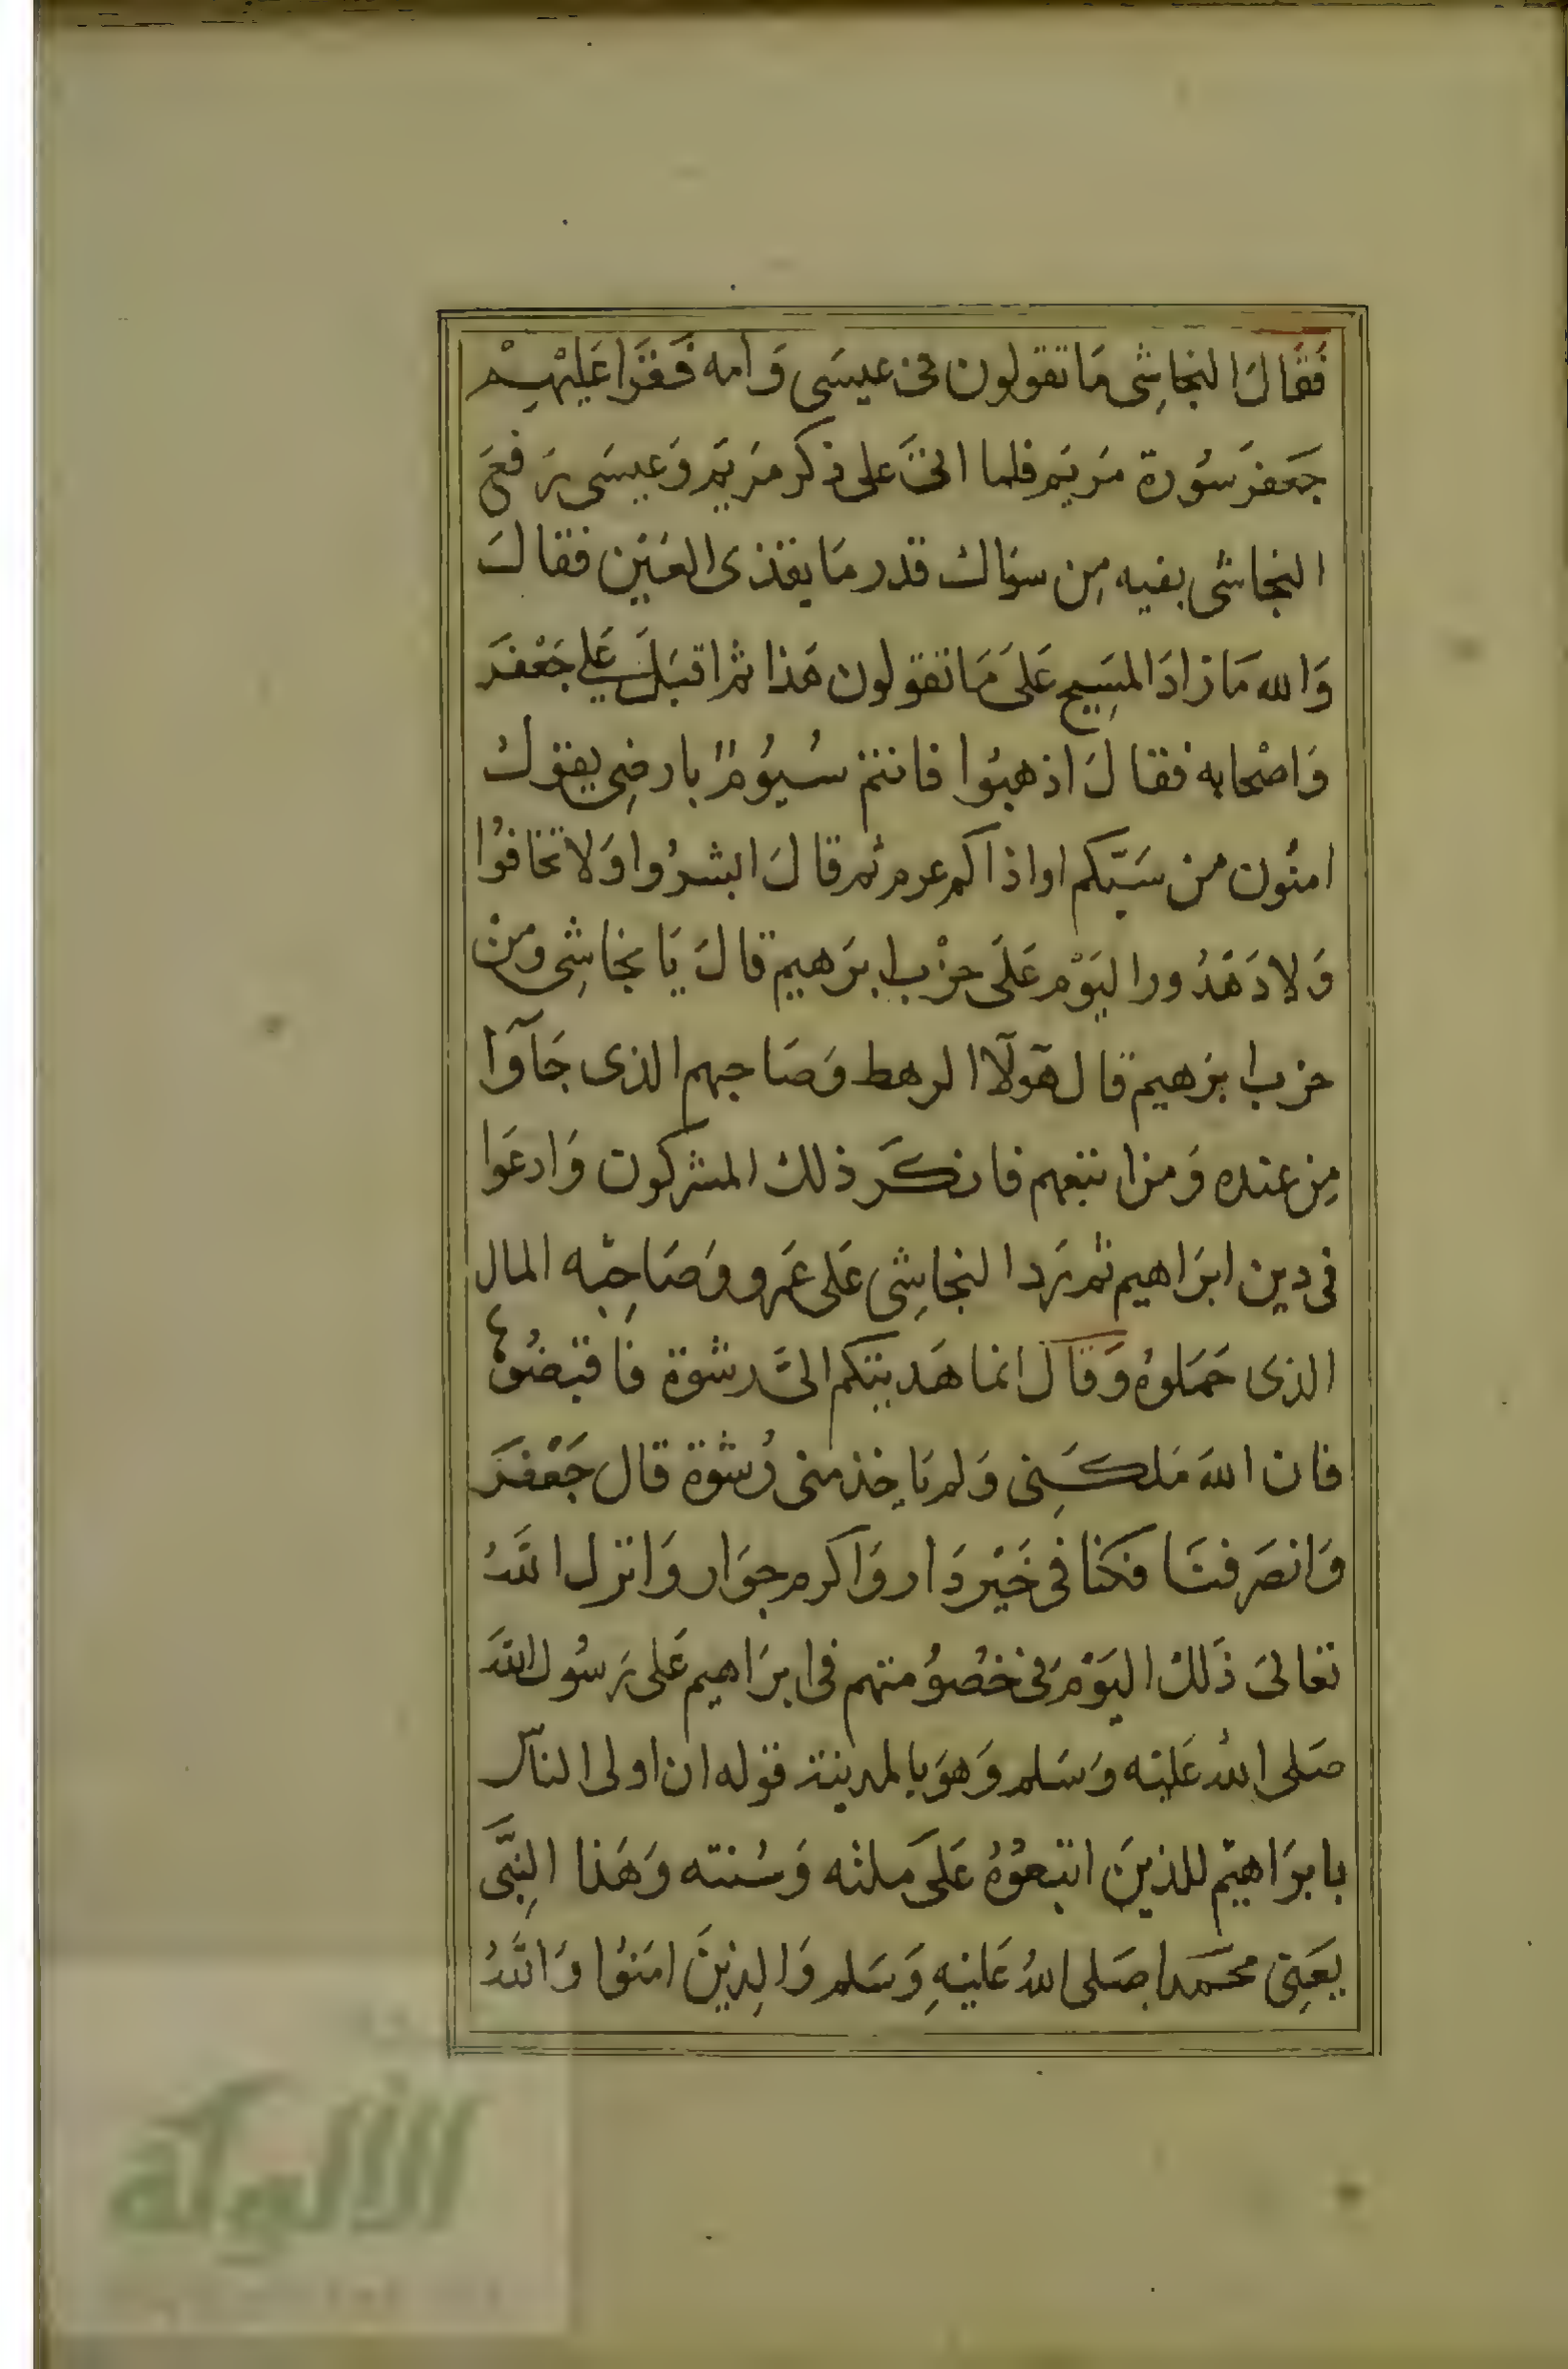 فَقَالَ النجاشِى مَا تقولون فى عيسَى وَامه فَقَرَا عَلَيْهِمْ
جَعَفر سُورة مَريَم فلما اتىَ على ذكر مَريَم وَعيسَى رَفعَ
النجاشى بفيه مِن سوَاك قدر مَا يقذى العَيْن فقالَ
وَالله مَا زادَ المسِيح عَلىَ مَا تقولون هَذا ثم اقبَلَ عَلي جَعْفرَ
وَاصْحابه فقالَ اذهبُوا فانتم سُيُومٌ بارضِى يقوك
امنُون من سَبَّكم او اذاكم عرم ثم قالَ ابشرُوا وَلا تخَافوُا
وَلا دَهَدُورا اليَوْم عَلَى حزْب ابرَهيم قالَ يَا نجاشِى ومِنْ
حزب ابرَهيم قال هَٓولَآا الرهط وَصَاحبهم الذى جَآوَا
مِن عنده وَمن اتبعهم فانكَر ذلك المشركون وَادعَوا
فى دين ابرَاهيم ثم رَد النجاشِى عَلى عَمرو وَصَاحِبْه المال
الذى حَمَلوهُ وَقال انما هَديتكم الىَّ رشوة فاقبضُوهُ
فان اللهَ مَلكَنِى وَلم يَاخذ منى رُشوة قال جَعْفرَ
وَانصَرفنَا فكنا فى خَيْر دَار وَاكرم جوَار وَانزل اللَّهُ
تعالىَ ذَلك اليَوْمَ فى خصُوُمتهم فى ابرَاهيم عَلى رَسُول اللَّهَ
صَلى اللهُ عَليْه وَسَلم وَهوَ بالمدينة قوله ان اولى الناسَ
بابرَاهيْم للذينَ اتبعوُهُ عَلىَ ملته وَسُنته وَهَذا النِبَّى
يَعَنِى محَمدا صَلى اللهُ عَليْهِ وَسَلم وَالِذينَ امَنوُا وَاللَّهُ
الألوكة